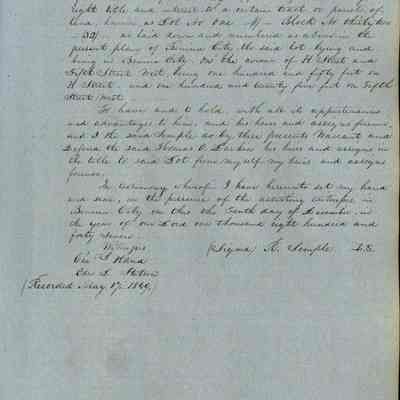 right title and interest to a certain tract or parcel of
land, known as Lot No One (1) Block No thirty two
(32) as laid down and numbered as above in the
present plan of Benicia City the said lot lying and
being in Benicia City, on the corner of H Street and
Fifth Street West, being one hundred and fifty feet on
H Street, and one hundred and twenty five feet on Fifth
Street West.
To have and to hold, with all its appurtenances
and advantages to him, and his heirs and assigns forever,
and I the said Semple do by these presents Warrant and
Defend the said Thomas O. Larkin his heirs and assigns in
the title to said Lot from myself my heirs and assigns
forever.
In testimony whereof I have hereunto set my hand
and seal, in the presence of the attesting witnesses in
Benicia City on this the Tenth day of December in
the year of our Lord one thousand eight hundred and
forty seven.
Witnesses
(Signed R. Semple L.S.
(Recorded May 17, 1849)